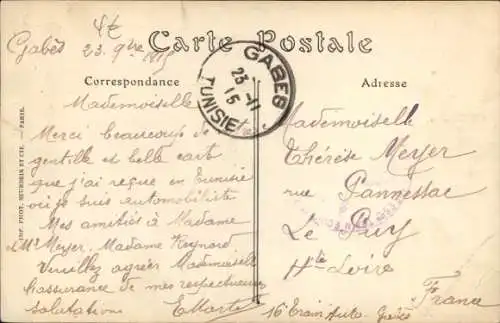 Gabès
23. 9bre 1915
Carte Postale
GABES
23 -11
15
TUNISIE
Correspondance
Adresse
Mademoiselle
Merci beaucoup de
gentille et belle cart
que j'ai reçue en Tunisie
où je suis automobiliste
Mes amitiés à Madame
& Mr Meyer. Madame Reynord.
Veuillez agréer Mademoiselle
l'assurance de mes respectueuses
salutations
EMarte
Mademoiselle
Thérèse Meyer
rue Pannessac
Le Puy
Hte Loire
France
16 Train Auto. Gabès
IMP. PHOT. NEURDEIN ET CIE. — PARIS.